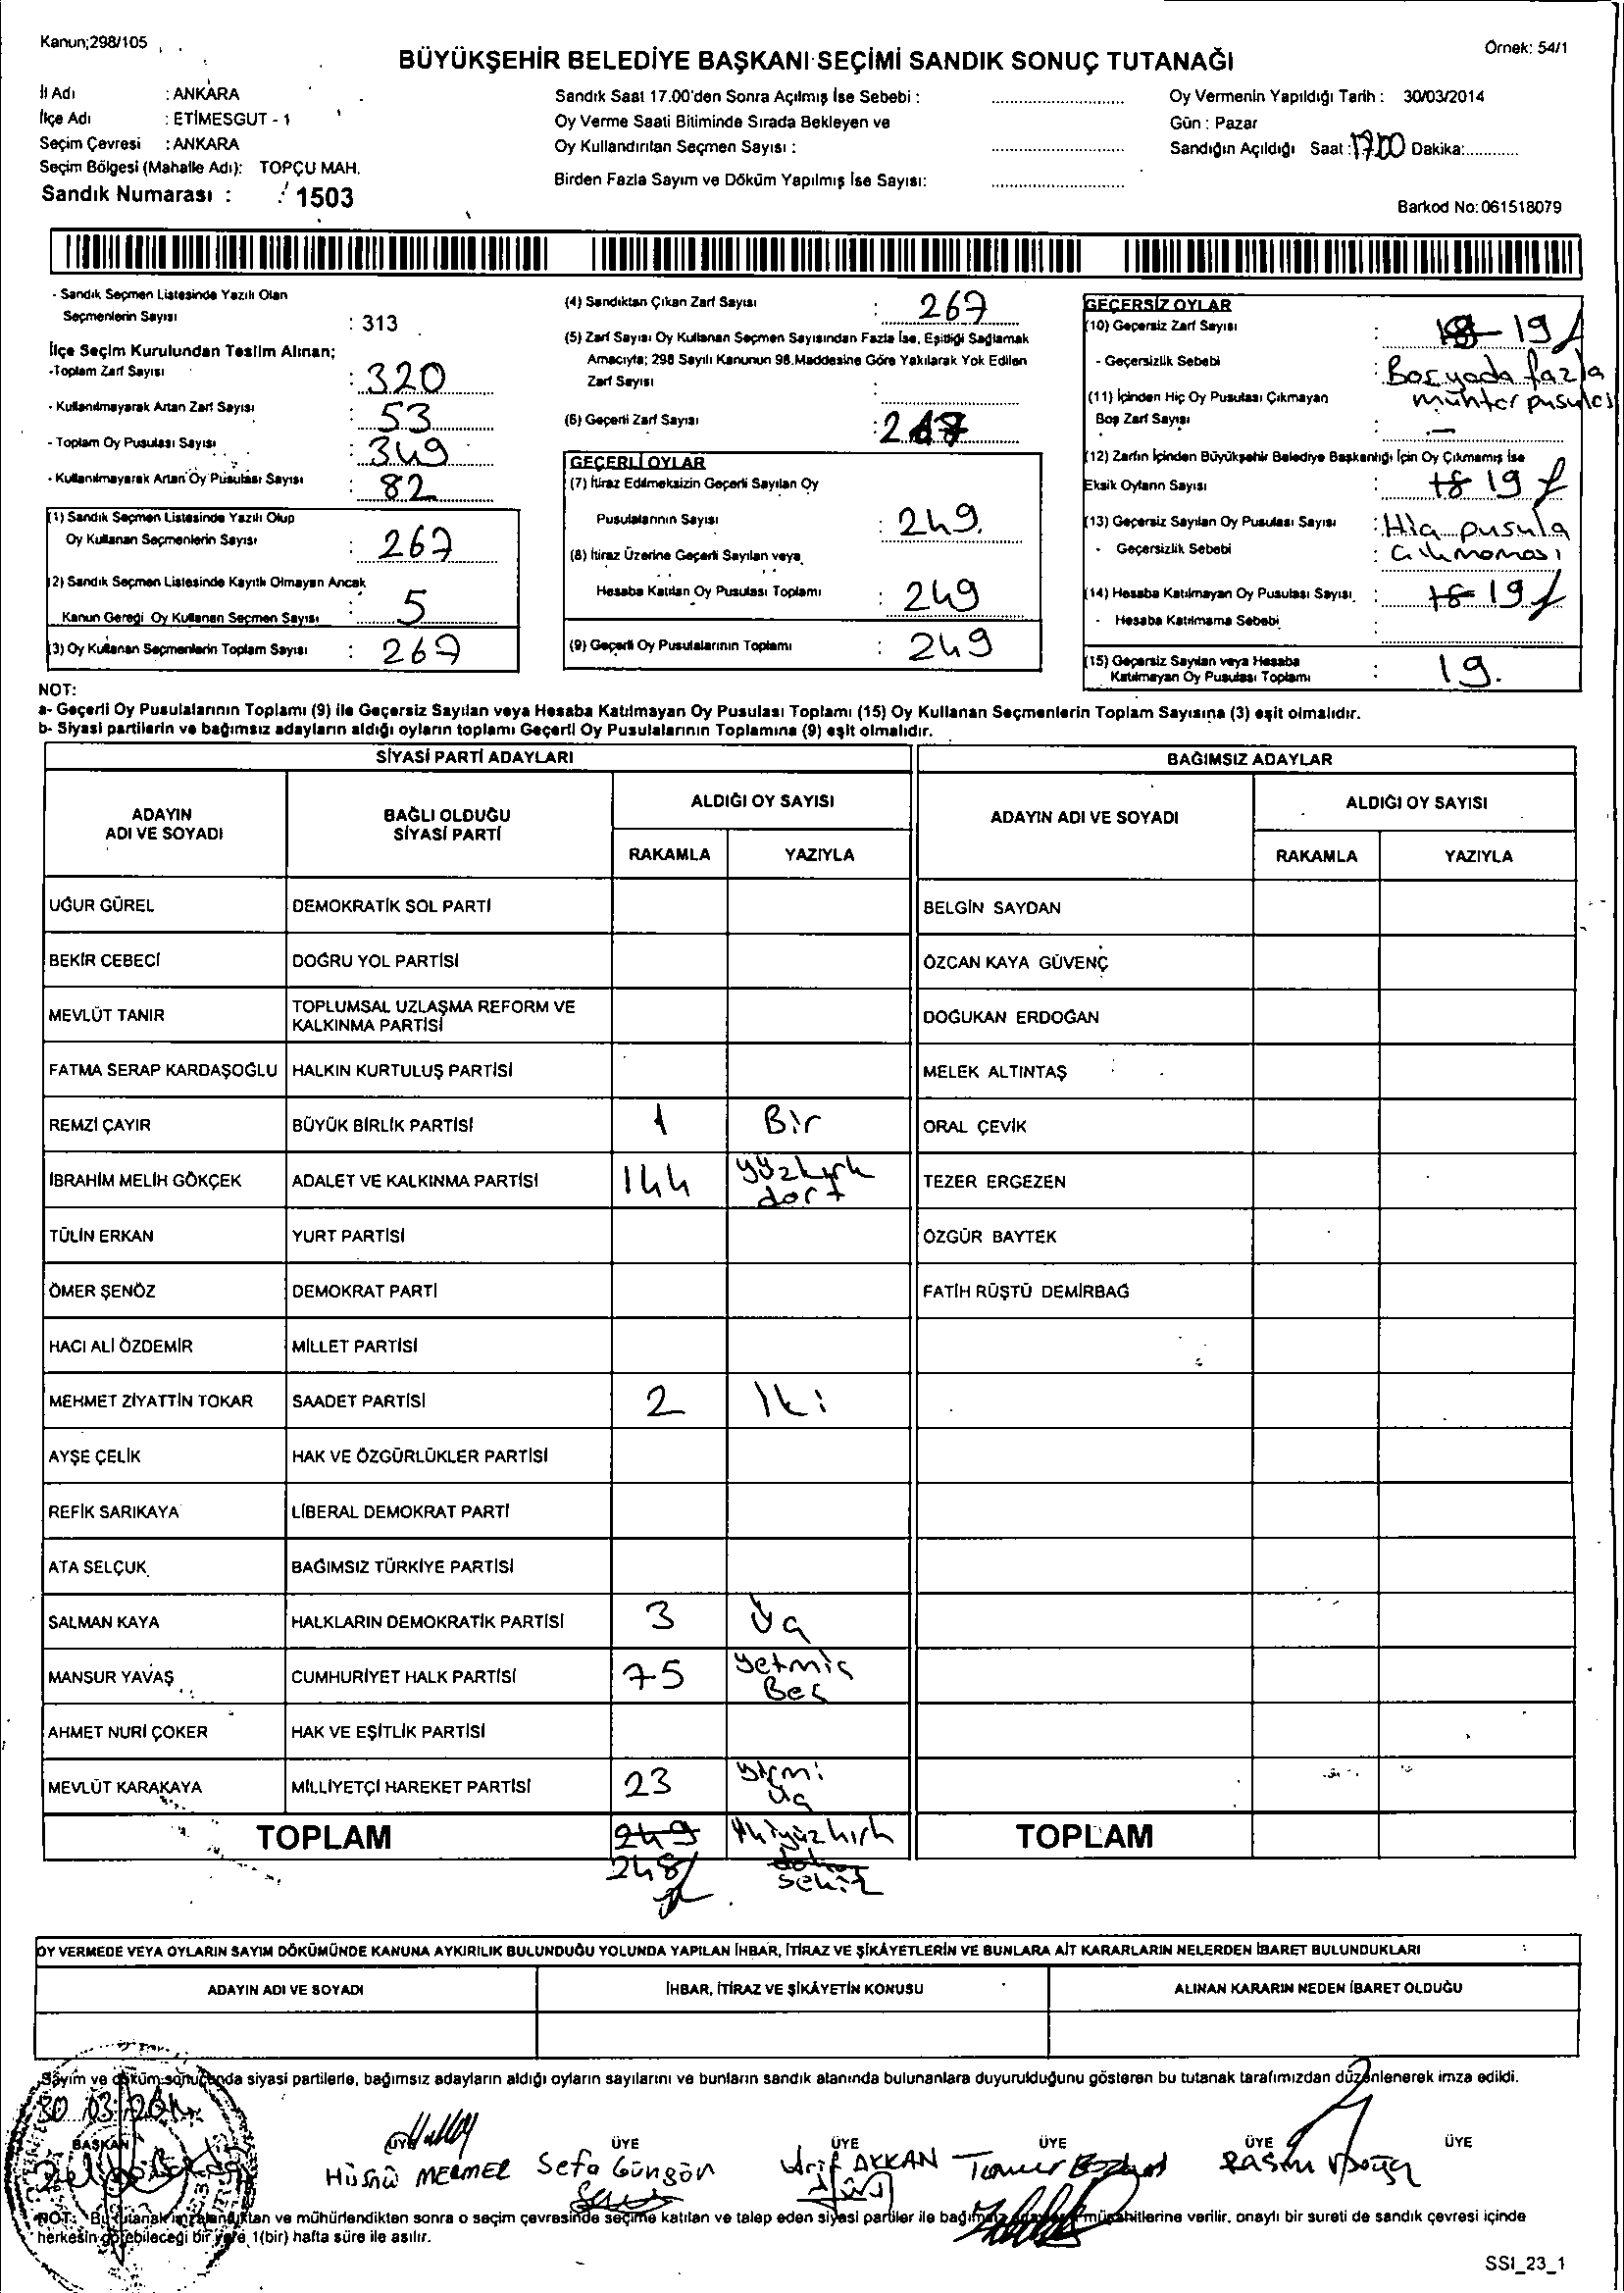 Kanun;298/105
Örnek: 54/1
BÜYÜKŞEHİR BELEDİYE BAŞKANI SEÇİMİ SANDIK SONUÇ TUTANAĞI
İl Adı : ANKARA
İlçe Adı : ETİMESGUT - 1
Seçim Çevresi : ANKARA
Seçim Bölgesi (Mahalle Adı): TOPÇU MAH.
Sandık Numarası : 1503
Sandık Saat 17.00'den Sonra Açılmış İse Sebebi :
Oy Verme Saati Bitiminde Sırada Bekleyen ve
Oy Kullandırılan Seçmen Sayısı :
Birden Fazla Sayım ve Döküm Yapılmış İse Sayısı:
Oy Vermenin Yapıldığı Tarih : 30/03/2014
Gün : Pazar
Sandığın Açıldığı Saat : 17.00 Dakika:
Barkod No: 061518079
- Sandık Seçmen Listesinde Yazılı Olan
Seçmenlerin Sayısı : 313
İlçe Seçim Kurulundan Teslim Alınan;
-Toplam Zarf Sayısı : 320
- Kullanılmayarak Artan Zarf Sayısı : 53
- Toplam Oy Pusulası Sayısı : 349
- Kullanılmayarak Artan Oy Pusulası Sayısı : 82
(1) Sandık Seçmen Listesinde Yazılı Olup
Oy Kullanan Seçmenlerin Sayısı : 267
(2) Sandık Seçmen Listesinde Kayıtlı Olmayan Ancak
Kanun Gereği Oy Kullanan Seçmen Sayısı : 5
(3) Oy Kullanan Seçmenlerin Toplam Sayısı : 267
(4) Sandıktan Çıkan Zarf Sayısı : 267
(5) Zarf Sayısı Oy Kullanan Seçmen Sayısından Fazla İse, Eşitliği Sağlamak
Amacıyla; 298 Sayılı Kanunun 98.Maddesine Göre Yakılarak Yok Edilen
Zarf Sayısı :
(6) Geçerli Zarf Sayısı : 267
GEÇERLİ OYLAR
(7) İtiraz Edilmeksizin Geçerli Sayılan Oy
Pusulalarının Sayısı : 249
(8) İtiraz Üzerine Geçerli Sayılan veya
Hesaba Katılan Oy Pusulası Toplamı : 249
(9) Geçerli Oy Pusulalarının Toplamı : 249
GEÇERSİZ OYLAR
(10) Geçersiz Zarf Sayısı : 18 19
- Geçersizlik Sebebi : Bosyada fazla
muhtar pusulası
(11) İçinden Hiç Oy Pusulası Çıkmayan
Boş Zarf Sayısı : -
(12) Zarfın İçinden Büyükşehir Belediye Başkanlığı İçin Oy Çıkmamış İse
Eksik Oyların Sayısı : 18 19
(13) Geçersiz Sayılan Oy Pusulası Sayısı : Hiç pusula
- Geçersizlik Sebebi : Çıkmaması
(14) Hesaba Katılmayan Oy Pusulası Sayısı : 18 19
- Hesaba Katılmama Sebebi :
(15) Geçersiz Sayılan veya Hesaba
Katılmayan Oy Pusulası Toplamı : 19.
NOT:
a- Geçerli Oy Pusulalarının Toplamı (9) ile Geçersiz Sayılan veya Hesaba Katılmayan Oy Pusulası Toplamı (15) Oy Kullanan Seçmenlerin Toplam Sayısına (3) eşit olmalıdır.
b- Siyasi partilerin ve bağımsız adayların aldığı oyların toplamı Geçerli Oy Pusulalarının Toplamına (9) eşit olmalıdır.
SİYASİ PARTİ ADAYLARI
BAĞIMSIZ ADAYLAR
ADAYIN ADI VE SOYADI
BAĞLI OLDUĞU SİYASİ PARTİ
ALDIĞI OY SAYISI
RAKAMLA YAZIYLA
ADAYIN ADI VE SOYADI
ALDIĞI OY SAYISI
RAKAMLA YAZIYLA
UĞUR GÜREL DEMOKRATİK SOL PARTİ BELGİN SAYDAN
BEKİR CEBECİ DOĞRU YOL PARTİSİ ÖZCAN KAYA GÜVENÇ
MEVLÜT TANIR TOPLUMSAL UZLAŞMA REFORM VE KALKINMA PARTİSİ DOĞUKAN ERDOĞAN
FATMA SERAP KARDAŞOĞLU HALKIN KURTULUŞ PARTİSİ MELEK ALTINTAŞ
REMZİ ÇAYIR BÜYÜK BİRLİK PARTİSİ 1 Bir ORAL ÇEVİK
İBRAHİM MELİH GÖKÇEK ADALET VE KALKINMA PARTİSİ 144 yüzkırk dört TEZER ERGEZEN
TÜLİN ERKAN YURT PARTİSİ ÖZGÜR BAYTEK
ÖMER ŞENÖZ DEMOKRAT PARTİ FATİH RÜŞTÜ DEMİRBAĞ
HACI ALİ ÖZDEMİR MİLLET PARTİSİ
MEHMET ZİYATTİN TOKAR SAADET PARTİSİ 2 İki
AYŞE ÇELİK HAK VE ÖZGÜRLÜKLER PARTİSİ
REFİK SARIKAYA LİBERAL DEMOKRAT PARTİ
ATA SELÇUK BAĞIMSIZ TÜRKİYE PARTİSİ
SALMAN KAYA HALKLARIN DEMOKRATİK PARTİSİ 3 Üç
MANSUR YAVAŞ CUMHURİYET HALK PARTİSİ 75 Yetmiş Beş
AHMET NURİ ÇOKER HAK VE EŞİTLİK PARTİSİ
MEVLÜT KARAKAYA MİLLİYETÇİ HAREKET PARTİSİ 23 yirmi üç
TOPLAM 249 ikiyüzkırk TOPLAM
248 dokuz sekiz
OY VERMEDE VEYA OYLARIN SAYIM DÖKÜMÜNDE KANUNA AYKIRILIK BULUNDUĞU YOLUNDA YAPILAN İHBAR, İTİRAZ VE ŞİKÂYETLERİN VE BUNLARA AİT KARARLARIN NELERDEN İBARET BULUNDUKLARI
ADAYIN ADI VE SOYADI İHBAR, İTİRAZ VE ŞİKÂYETİN KONUSU ALINAN KARARIN NEDEN İBARET OLDUĞU
Sayım ve döküm sonucunda siyasi partilerle, bağımsız adayların aldığı oyların sayılarını ve bunların sandık alanında bulunanlara duyurulduğunu gösteren bu tutanak tarafımızdan düzenlenerek imza edildi.
30.03.2014
BAŞKAN ÜYE ÜYE ÜYE ÜYE ÜYE ÜYE
Hüsnü MERMER Sefa Güngör Arif AKKAN
NOT: Bu tutanak imzalandıktan ve mühürlendikten sonra o seçim çevresinde seçime katılan ve talep eden siyasi partiler ile bağımsız aday müşahitlerine verilir, onaylı bir sureti de sandık çevresi içinde
herkesin görebileceği bir yere 1(bir) hafta süre ile asılır.
SSI_23_1